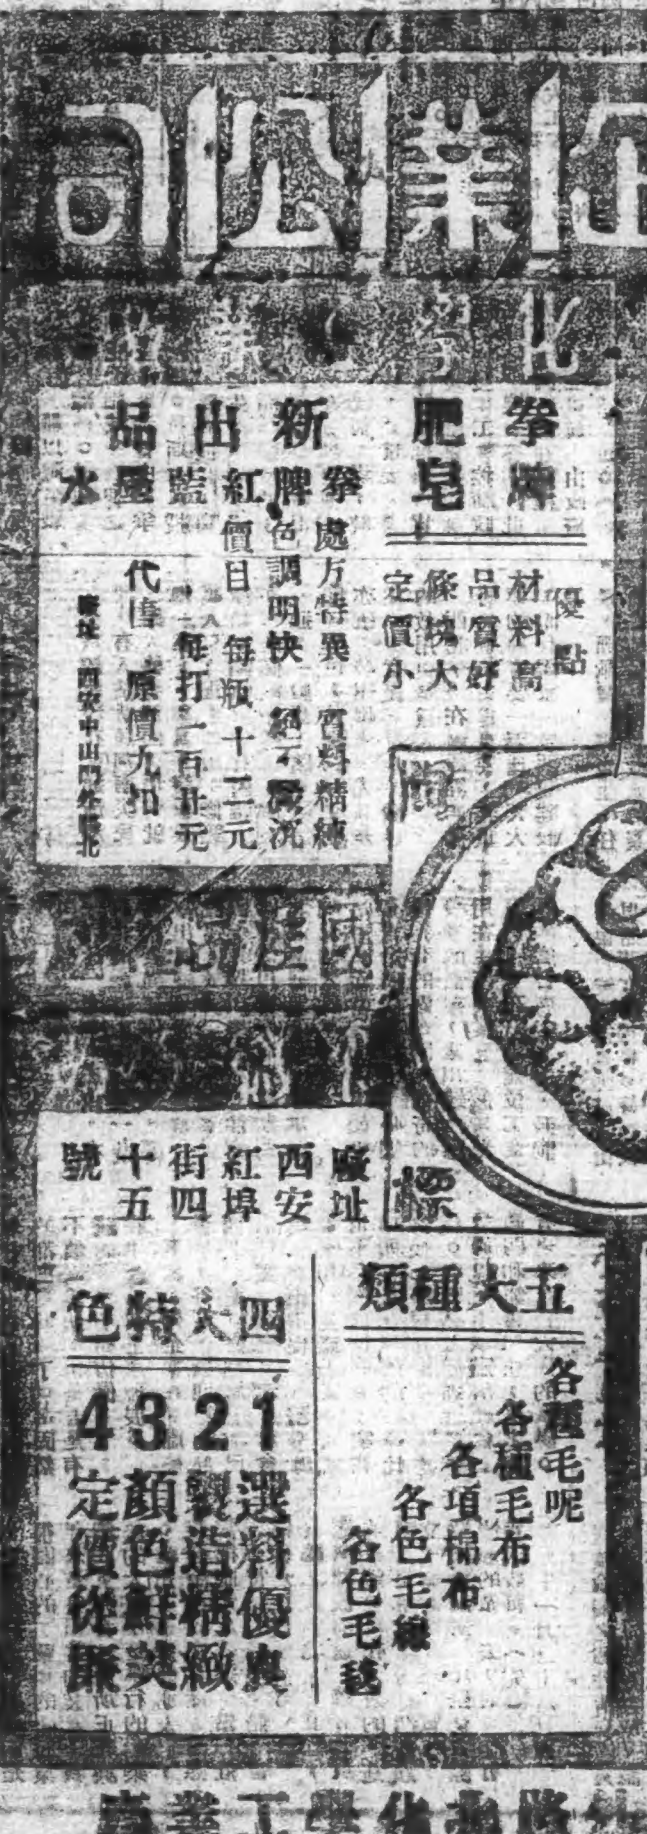 企業公司
化學工業
拳牌
肥皂
優點
材料高
品質好
條塊大
定價小
新出品
拳牌紅藍墨水
處方特異 質料精純
色調明快 絕不澱沉
價目 每瓶十二元
每打一百廿元
代售 原價九扣
廠址 西安中山門外
國產
商標
廠址
西安
紅埠
街四
十五
號
五大種類
各種毛呢
各種毛布
各項棉布
各色毛線
各色毛毯
四大特色
1 選料優良
2 製造精緻
3 顏色鮮美
4 定價從廉
化學工業